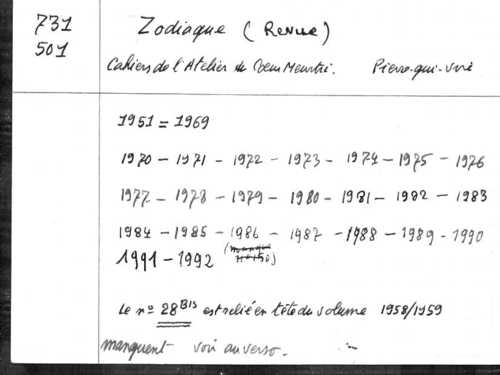 731
501
Zodiaque (Revue)
Cahiers de l'Atelier du Coeur Meurtri. Pierre-qui-vire
1951 = 1969
1970 - 1971 - 1972 - 1973 - 1974 - 1975 - 1976
1977 - 1978 - 1979 - 1980 - 1981 - 1982 - 1983
1984 - 1985 - 1986 - 1987 - 1988 - 1989 - 1990
1991 - 1992
Le nº 28 Bis est relié en tête du volume 1958/1959
manquent voir au verso.